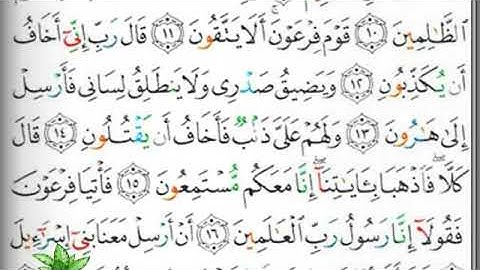 ٱلظَّٰلِمِينَ ١٠ قَوْمَ فِرْعَوْنَ ۚ أَلَا يَتَّقُونَ ١١ قَالَ رَبِّ إِنِّىٓ أَخَافُ
أَن يُكَذِّبُونِ ١٢ وَيَضِيقُ صَدْرِى وَلَا يَنطَلِقُ لِسَانِى فَأَرْسِلْ
إِلَىٰ هَٰرُونَ ١٣ وَلَهُمْ عَلَىَّ ذَنۢبٌ فَأَخَافُ أَن يَقْتُلُونِ ١٤ قَالَ
كَلَّا ۖ فَٱذْهَبَا بِـَٔايَٰتِنَآ ۖ إِنَّا مَعَكُم مُّسْتَمِعُونَ ١٥ فَأْتِيَا فِرْعَوْنَ
فَقُولَآ إِنَّا رَسُولُ رَبِّ ٱلْعَٰلَمِينَ ١٦ أَنْ أَرْسِلْ مَعَنَا بَنِىٓ إِسْرَٰٓءِيلَ